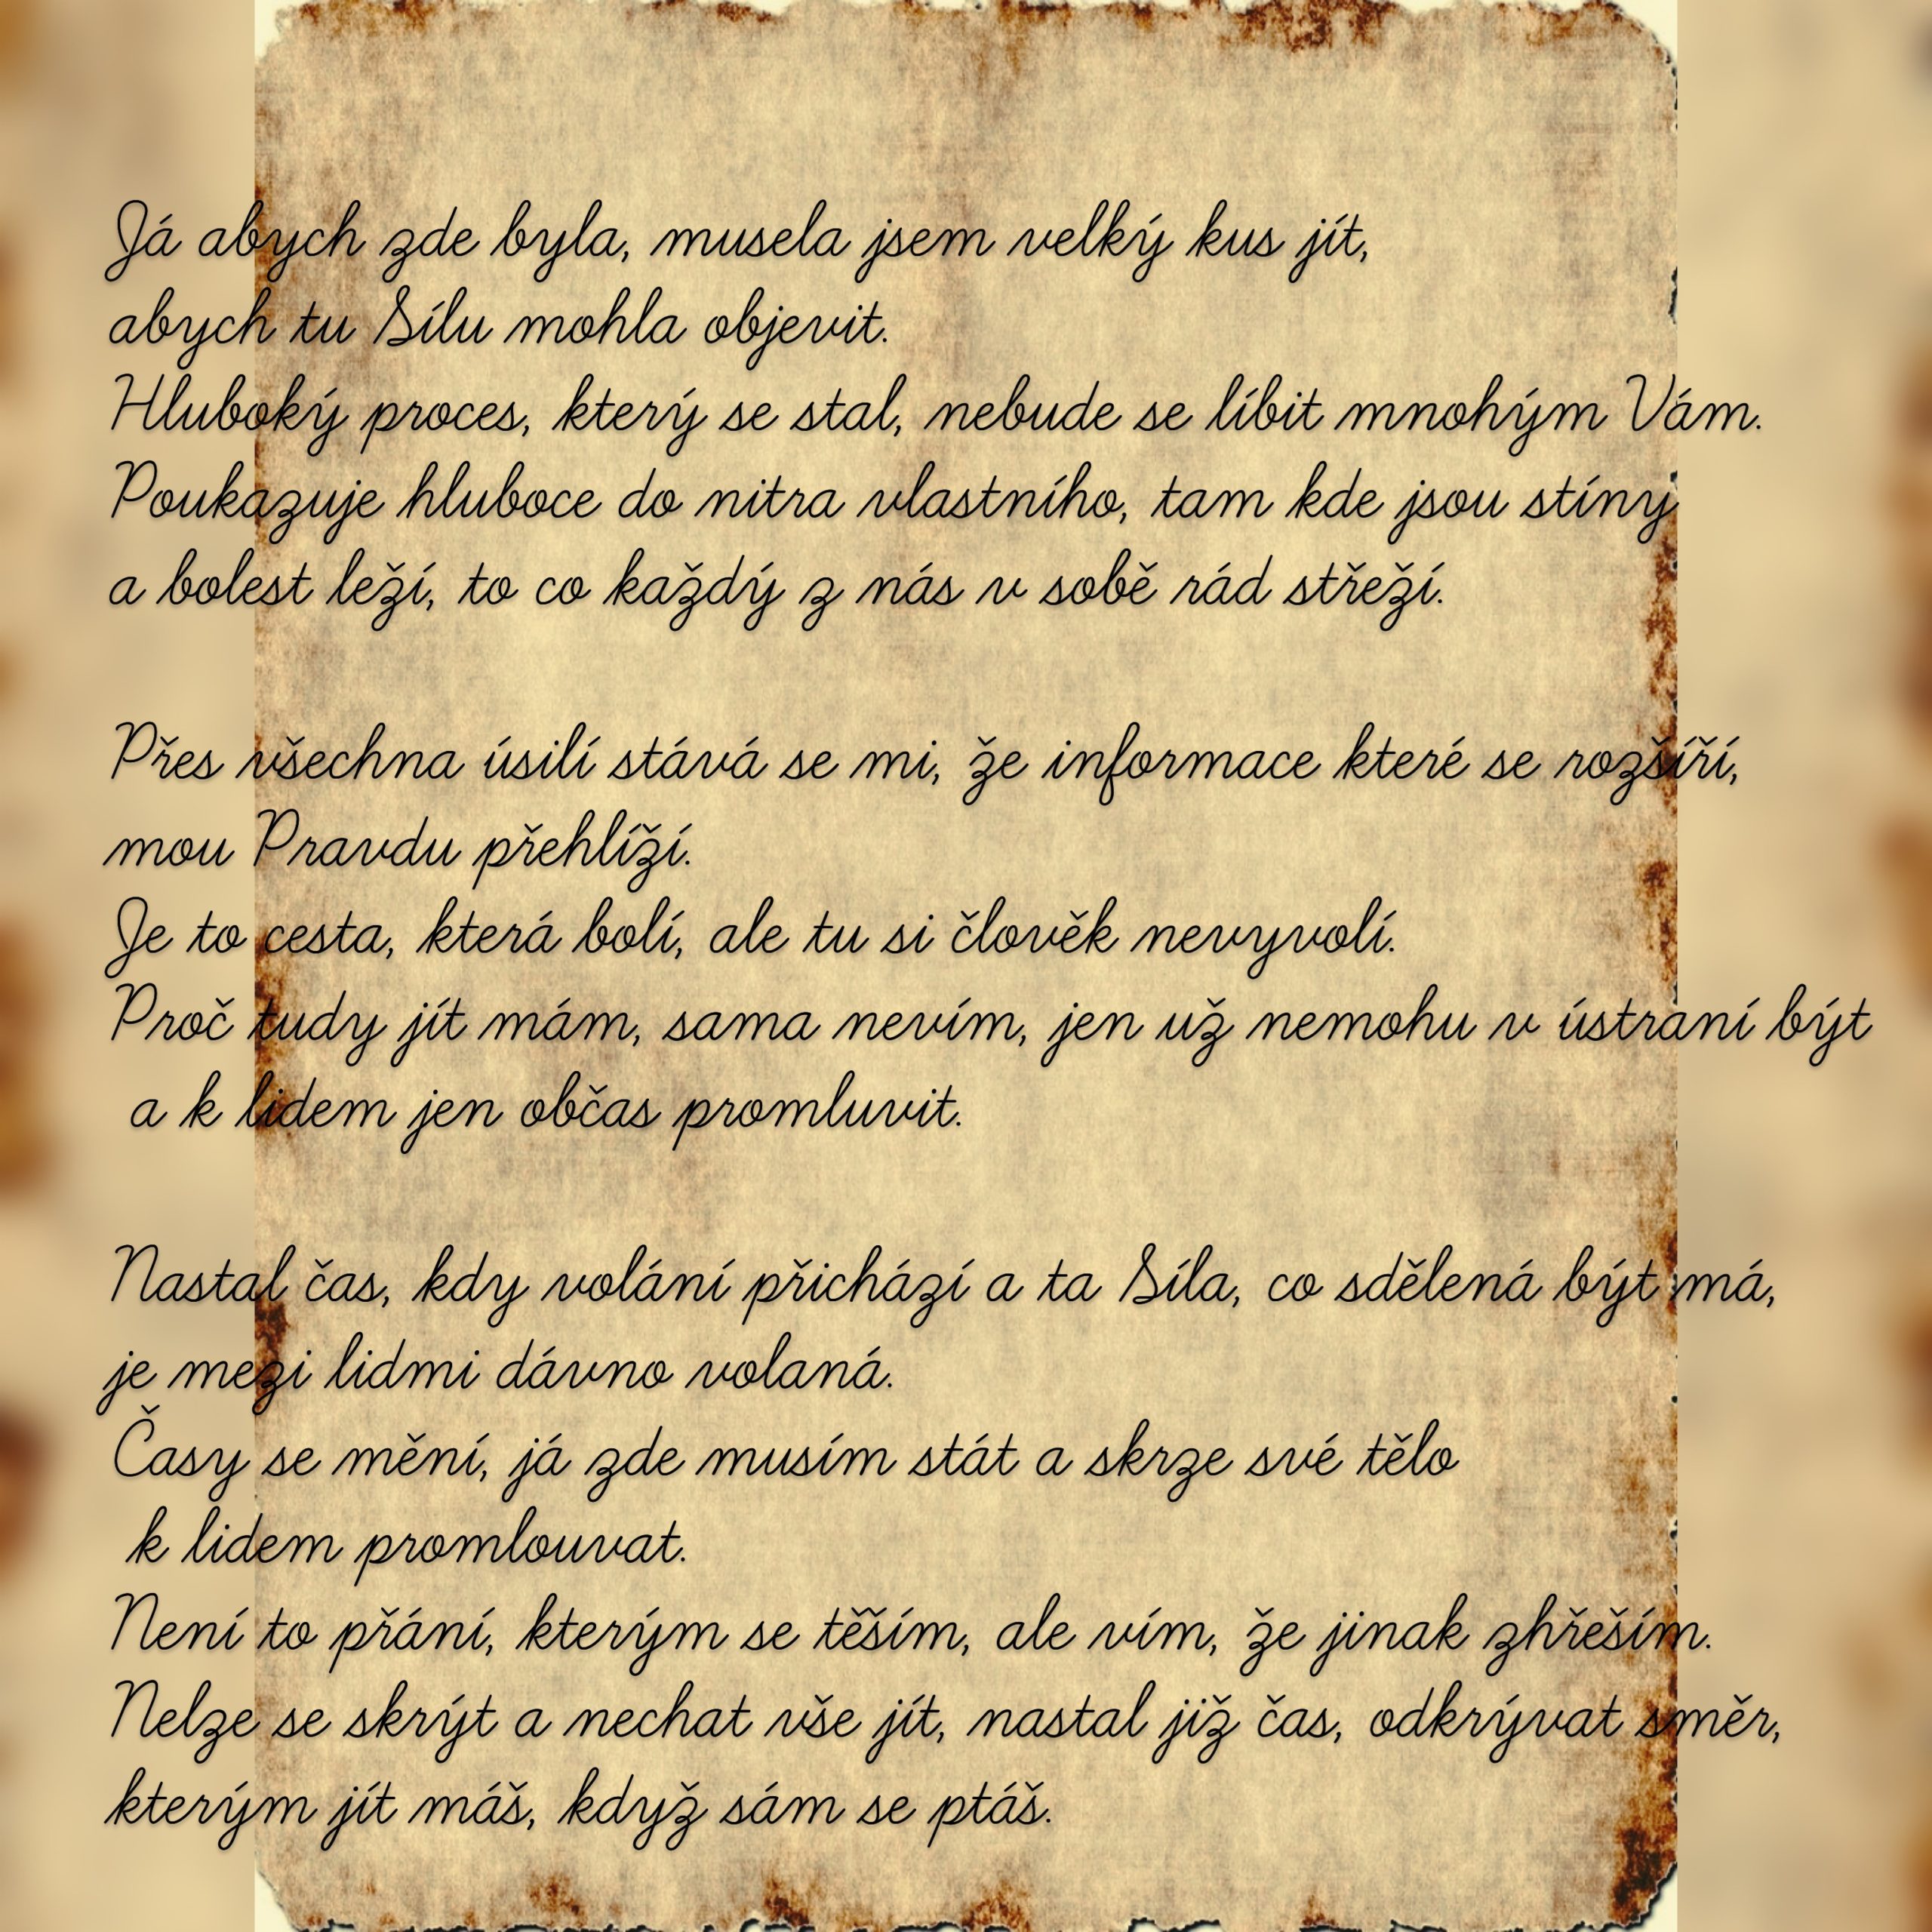 Já abych zde byla, musela jsem velký kus jít,
abych tu Sílu mohla objevit.
Hluboký proces, který se stal, nebude se líbit mnohým Vám.
Poukazuje hluboce do nitra vlastního, tam kde jsou stíny
a bolest leží, to co každý z nás v sobě rád střeží.
Přes všechna úsilí stává se mi, že informace které se rozšíří,
mou Pravdu přehlíží.
Je to cesta, která bolí, ale tu si člověk nevyvolí.
Proč tudy jít mám, sama nevím, jen už nemohu v ústraní být
a k lidem jen občas promluvit.
Nastal čas, kdy volání přichází a ta Síla, co sdělená být má,
je mezi lidmi dávno volaná.
Časy se mění, já zde musím stát a skrze své tělo
k lidem promlouvat.
Není to přání, kterým se těším, ale vím, že jinak zhřeším.
Nelze se skrýt a nechat vše jít, nastal již čas, odkrývat směr,
kterým jít máš, když sám se ptáš.